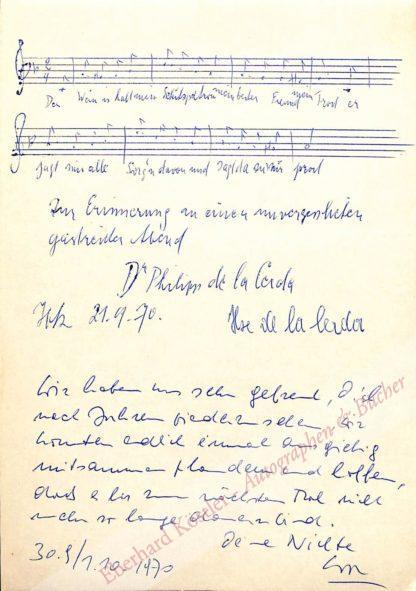 Der Wein is halt mein bester Freund Trost er
jagt mir alle Sorgen davon und sagt da zu mir prost
Zur Erinnerung an einen unvergesslichen
gastreichen Abend
Dr Philipp de la Cerda
21.9.70. Ilse de la Cerda
Wir haben uns sehr gefreut, Dich
nach Jahren wiederzusehen. Wir
konnten endlich einmal ausgiebig
mitsammen plaudern und hoffen,
dass es bis zum nächsten Mal nicht
mehr so lange dauern wird.
Deine Nichte
30.9/1.10.1970
Eberhard Köstler Autographen & Bücher